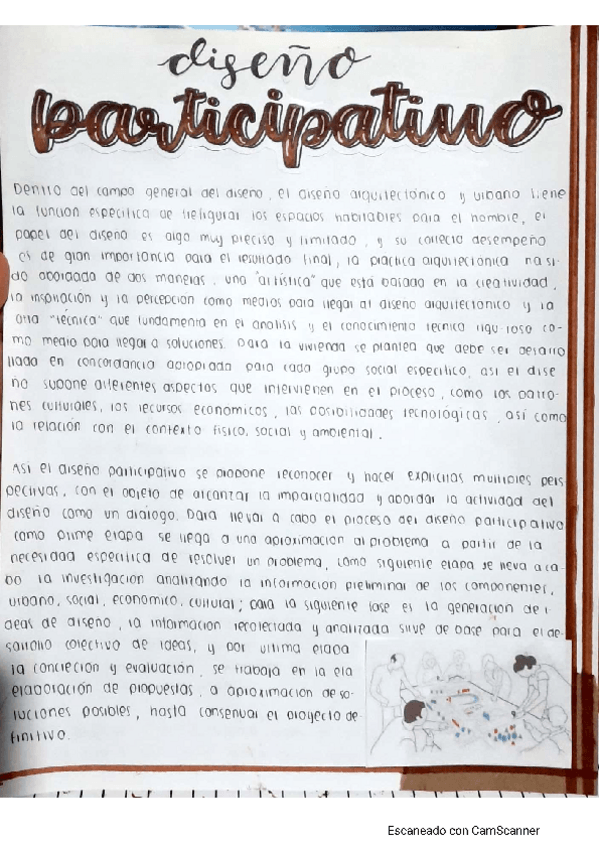 diseño
participativo
Dentro del campo general del diseño, el diseño arquitectónico y urbano tiene
la función específica de prefigurar los espacios habitables para el hombre, el
papel del diseño es algo muy preciso y limitado, y su correcto desempeño
es de gran importancia para el resultado final, la práctica arquitectónica ha si-
do abordada de dos maneras, una "artística" que está basada en la creatividad,
la inspiración y la percepción como medios para llegar al diseño arquitectónico y la
otra "técnica" que fundamenta en el análisis y el conocimiento técnico riguroso co-
mo medio para llegar a soluciones. Para la vivienda se plantea que debe ser desarro
llada en concordancia apropiada para cada grupo social específico, así el dise
ño supone diferentes aspectos que intervienen en el proceso, como los patro-
nes culturales, los recursos económicos, las posibilidades tecnológicas, así como
la relación con el contexto físico, social y ambiental.
Así el diseño participativo se propone reconocer y hacer explícitas múltiples pers
pectivas, con el objeto de alcanzar la imparcialidad y abordar la actividad del
diseño como un diálogo. Para llevar a cabo el proceso del diseño participativo
como prime etapa se llega a una aproximación al problema a partir de la
necesidad específica de resolver un problema, como siguiente etapa se lleva a ca-
bo la investigación analizando la información preliminar de los componentes,
urbano, social, económico, cultural; para la siguiente fase es la generación de i
deas de diseño, la información recolectada y analizada sirve de base para el de-
sarrollo colectivo de ideas, y por ultima etapa
la concreción y evaluación, se trabaja en la
elaboración de propuestas, o aproximación de so-
luciones posibles, hasta consensuar el proyecto de-
finitivo.
Escaneado con CamScanner